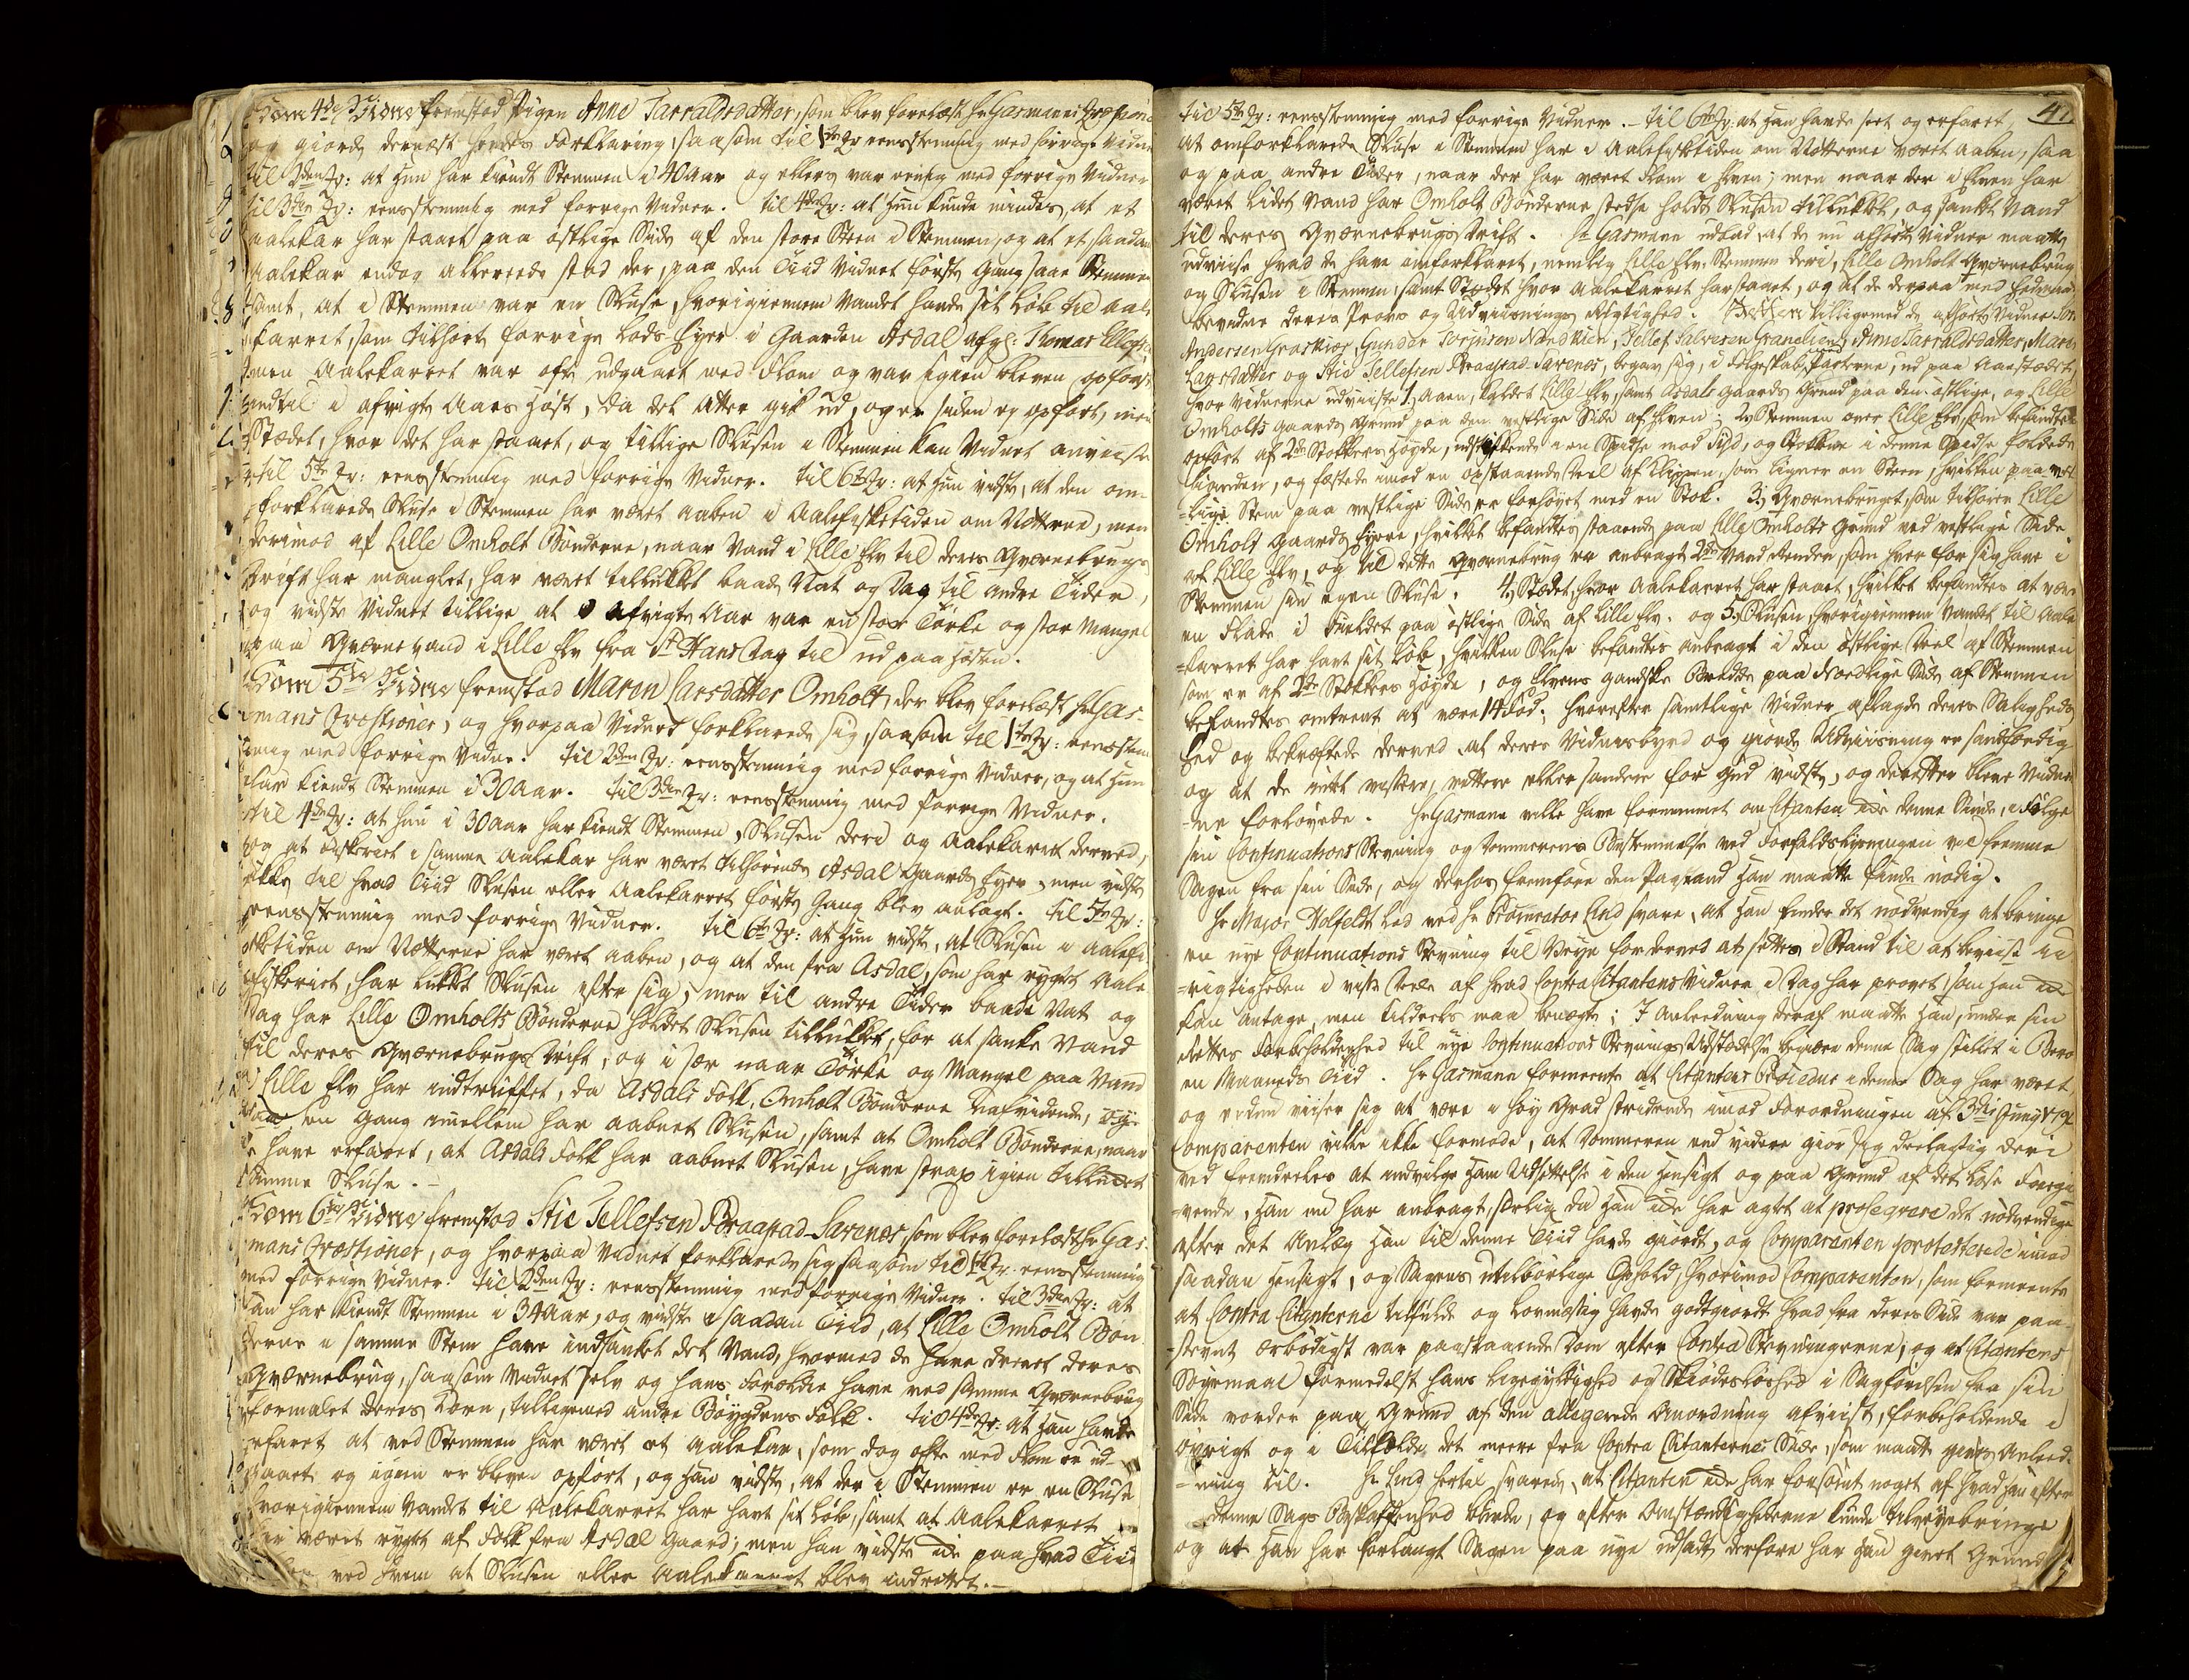 Som 4de Vidne fremstod Pigen Anne Tarraldsdatter, som blev forelæst Hr Gasmans
og giorde dernæst hendes Forklaring, saasom til 1te Qv: eensstemmig med forrige Vidne
til 2den Qv: at hun har kiendt Stemmen i 40 Aar og ellers var eenig med forrige Vidner
til 3die Qv: eensstemmig med forrige Vidner. til 4de Qv: at hun kunde mindes, at et
aalekar har staaet paa østlige Side af den store Steen i Stemmen, og at et saadan
Aalekar endog allereede stod der, paa den Tiid Vidnet første Gang saae Stemmen
samt, at i Stemmen var en Sluse, hvorigiennem Vandet havde sit Løb til Aale
karret, som tilhørte forrige Lods Eyer i Gaarden Asdal afg: Thomas Ellefsen
men Aalekarret var ofte udgaaet med Flom og var igien bleven opført
indtil i afvigte Aars Høst, da det atter gik ud, og er siden ey opført, men
Stædet, hvor det har staaet, og tillige Slusen i Stemmen kan Vidnet anviise
til 5te Qv: eensstemmig med forrige Vidner. til 6te Qv: at hun vidste, at den om-
forklarede Sluse i Stemmen har været aaben i Aalefisketiden om Nætterne, men
derimod af Lille Omholt Bønderne, naar Vand i Lille Elv til deres Qværnebrugs
Drift har manglet, har været tillukket baade Nat og Dag til andre Tider,
og vidste Vidnet tillige at afvigte Aar var en stor Tørke og stor Mangel
paa Qværnevand i Lille Elv fra St Hans Dag til ud paa Høsten.
Som 5te Vidne fremstod Maren Larsdatter Omholt, der blev forelæst Hr Gas-
mans Qvæstioner, og hvorpaa Vidnet forklarede sig, saasom til 1te Qv: eensstem
mig med forrige Vidne. til 2den Qv: eensstemmig med forrige Vidner, og at hun
har kiendt Stemmen i 30 Aar. til 3die Qv: eensstemmig med forrige Vidner.
til 4de Qv: at hun i 30 Aar har kiendt Stemmen, Slusen deri og Aalekarret derved,
og at Fiskeriet i samme Aalekar har været tilhørende Asdal Gaards Eyer, men vidste
ikke til hvad Tiid Slusen eller Aalekarret første Gang blev anlagt. til 5te Qv:
eensstemmig med forrige Vidner. til 6te Qv: at hun vidste, at Slusen i Aalefi
sketiden om Nætterne har været aaben, og at den fra Asdal, som har rygtet Aale
fiskeriet, har lukket Slusen efter sig, men til andre Tider baade Nat og
Dag har Lille Omholts Bønderne holdet Slusen tillukket, for at sanke Vand
til deres Qværnebrugs Drift, og i sær naar Tørke og Mangel paa Vand
i Lille Elv har indtruffet, da Asdals Folk, Omholt Bønderne uafvidende,
en Gang imellem har aabnet Slusen, samt at Omholt Bønderne, naar
de have erfaret, at Asdals Folk har aabnet Slusen, have strax igien tillukt
samme Sluse.
Som 6te Vidne fremstod Stie Tellefsen Braastad-Sarenes, som blev forelæst Hr Gas-
mans Qvæstioner, og hvorpaa Vidnet forklarede sig saasom til 1te Qv: eensstemmig
med forrige Vidner. til 2den Qv: eensstemmig med forrige Vidner. til 3die Qv: at
han har kiendt Stemmen i 34 Aar, og vidste i saadan Tiid, at Lille Omholt Bøn-
derne i samme Stem have indsanket det Vand, hvormed de have drevet deres
Qværnebrug, saasom Vidnet selv og hans Forældre have ved samme Qværnebrug
formalet deres Korn, tilligemed andre Bøygdens Folk. til 4de Qv: at han havde
erfaret at ved Stemmen har været et Aalekar, som dog ofte med Flom er ud-
gaaet og igien er bleven opført, og han vidste, at der i Stemmen er en Sluse
hvorigiennem Vandet til Aalekarret har havt sit Løb, samt at Aalekarret
har været rygtet af Folk fra Asdal Gaard; men han vidste icke paa hvad Tiid
ved hvem at Slusen eller Aalekarret blev indrettet.
47
til 5te Qv: eensstemmig med forrige Vidner. til 6te Qv: at han havde seet og erfaret
at omforklarede Sluse i Stemmen har i Aalefisketiden om Nætterne været aaben, saa
og paa andre Tider, naar der har været Flom i Elven; men naar der i Elven har
været lidet Vand har Omholt Bønderne stedse holdt Slusen tillukket, og sanket Vand
til deres Qværnebrugs Drift. Hr Gasmann udbad, at de nu afhørte Vidner maatte
udviise hvad de have omforklaret, nemlig Lille Elv, Stemmen deri, Lille Omholt Qværnebrug
og Slusen i Stemmen, samt Stædet hvor Aalekarret har staaet, og at de derpaa med Eed
bevidne deres Provs og Udviisnings Rigtighed. Retten tilligemed de afhørte Vidner
Andersen Graskiær, Gunder Torjusen Nandkien, Tellef Salvesen Granelien, Anne Tarraldsdatter, Maren
Larsdatter og Stie Tellefsen Braastad Sarenes, begav sig, i Følgeskab med Parterne, ud paa Aastædet,
hvor Vidnerne udviiste 1, Aaen, kaldet Lille Elv, samt Asdals Gaards Grund paa den østlige, og Lille
Omholts Gaards Grund paa den vestlige Side af Elven; 2, Stemmen over Lille Elv, som befandtes
opført af 2de Stokkers Høyde, udstikkende i en Spidse mod Syd, og Stokkene i denne Spidse foldede
hinanden, og fæstede imod en opstaaende Deel af Klippen, som ligner en Steen, hvilken paa vest
lige Stem paa vestlige Side er forhøyet med en Stok. 3, Qværnebruget, som tilhører Lille
Omholt Gaards Eyere, hvilket befandtes staaende paa Lille Omholts Grund ved vestlige Side
af Lille Elv, og til dette Qværnebrug er anbragt 2de Vand Render, som hver for sig have i
Stemmen sin egen Sluse. 4, Stædet, hvor Aalekarret har staaet, hvilket befandtes at være
en Flade i Fieldet paa østlige Side af Lille Elv. og 5, Slusen, hvorigiennem Vandet til Aale
karret har havt sit Løb, hvilken Sluse befandtes anbragt i den østlige Deel af Stemmen
som er af 2de Stokkers Høyde, og Elvens gandske Bredde paa Nordlige Side af Stemmen
befandtes omtrent at være 14 Fod; hvorefter samtlige Vidner aflagde deres Saligheds
Eed og bekræftede derved at deres Vidnesbyrd og giorde Udviisning er sandfærdig
og at de intet vissere, vittere eller sandere for Gud vidste, og derefter bleve Vidner
ne forløvede. Hr Gasmann ville have fornemmet om Citanten icke denne Sinde, i Følge
sin Continuations Stevning og Dommerens Bestemmelse ved Forfaldskiendningen vil fremme
Sagen fra sin Side, og derhos fremføre den Paastand han maatte finde nødig.
Hr Major Holfeldt lod ved Hr Procurator Lind svare, at han finder det nødvendig at bringe
en nye Continuations Stevning til Veye for derved at settes i Stand til at beviise U
rigtigheden i visse Deele af hvad Contra Citantens Vidner i Dag har provet, som han icke
kan antage, men tildeels maa benægte; I Anleedning deraf maatte han, under sin
Rettes Forbeholdenhed til nye Continuations Stevnings Udstædelse begiære denne Sag stillet i Bero
en Maaneds Tiid. Hr Gasmann formeente at Citantens Procedure i denne Sag har været,
og reden viiser sig at være i høy Grad stridende imod Forordningen af 3die Juny 1796
Comparenten vilde ikke formode, at Dommeren ved videre giør sig deelagtig deri
ved fremdeeles at indvilge ham Udsettelse i den Hensigt og paa Grund af det løse Foregi
vende, han nu har anbragt, særlig da han icke har agtet at proseqvere det nødvendige
efter det Anlæg han til denne Tiid havde giordt, og Comparenten protesterede imod
saadan Hensigt, og Sagens utilbørlige Ophold, hvorimod Comparenten, som formeente
at Contra Citanterne tilfulde og lovmæssig havde godtgiordt hvad fra deres Side var paa-
stevnt ærbødigst var paastaaende Dom efter Contra Stevningerne, og at Citantens
Søgsmaal formedelst hans Ligegyldighed og Skiødesløshed i Sagførelsen fra sin
Side vorder paa Grund af den allegerede Anordning afviist, forbeholdende i
øvrigt og i Tilfælde, det meere fra Contra Citanternes Side, som maatte gives Anleed-
ning til. Hr Lind hertil svarede, at Citanten icke har forsømt noget af hvad han efter
denne Sags Beskaffenhed burde, og efter Omstændighederne kunde tilveyebringe
og at han har forlangt Sagen paa nye udsadt, derfore har han givet Grund